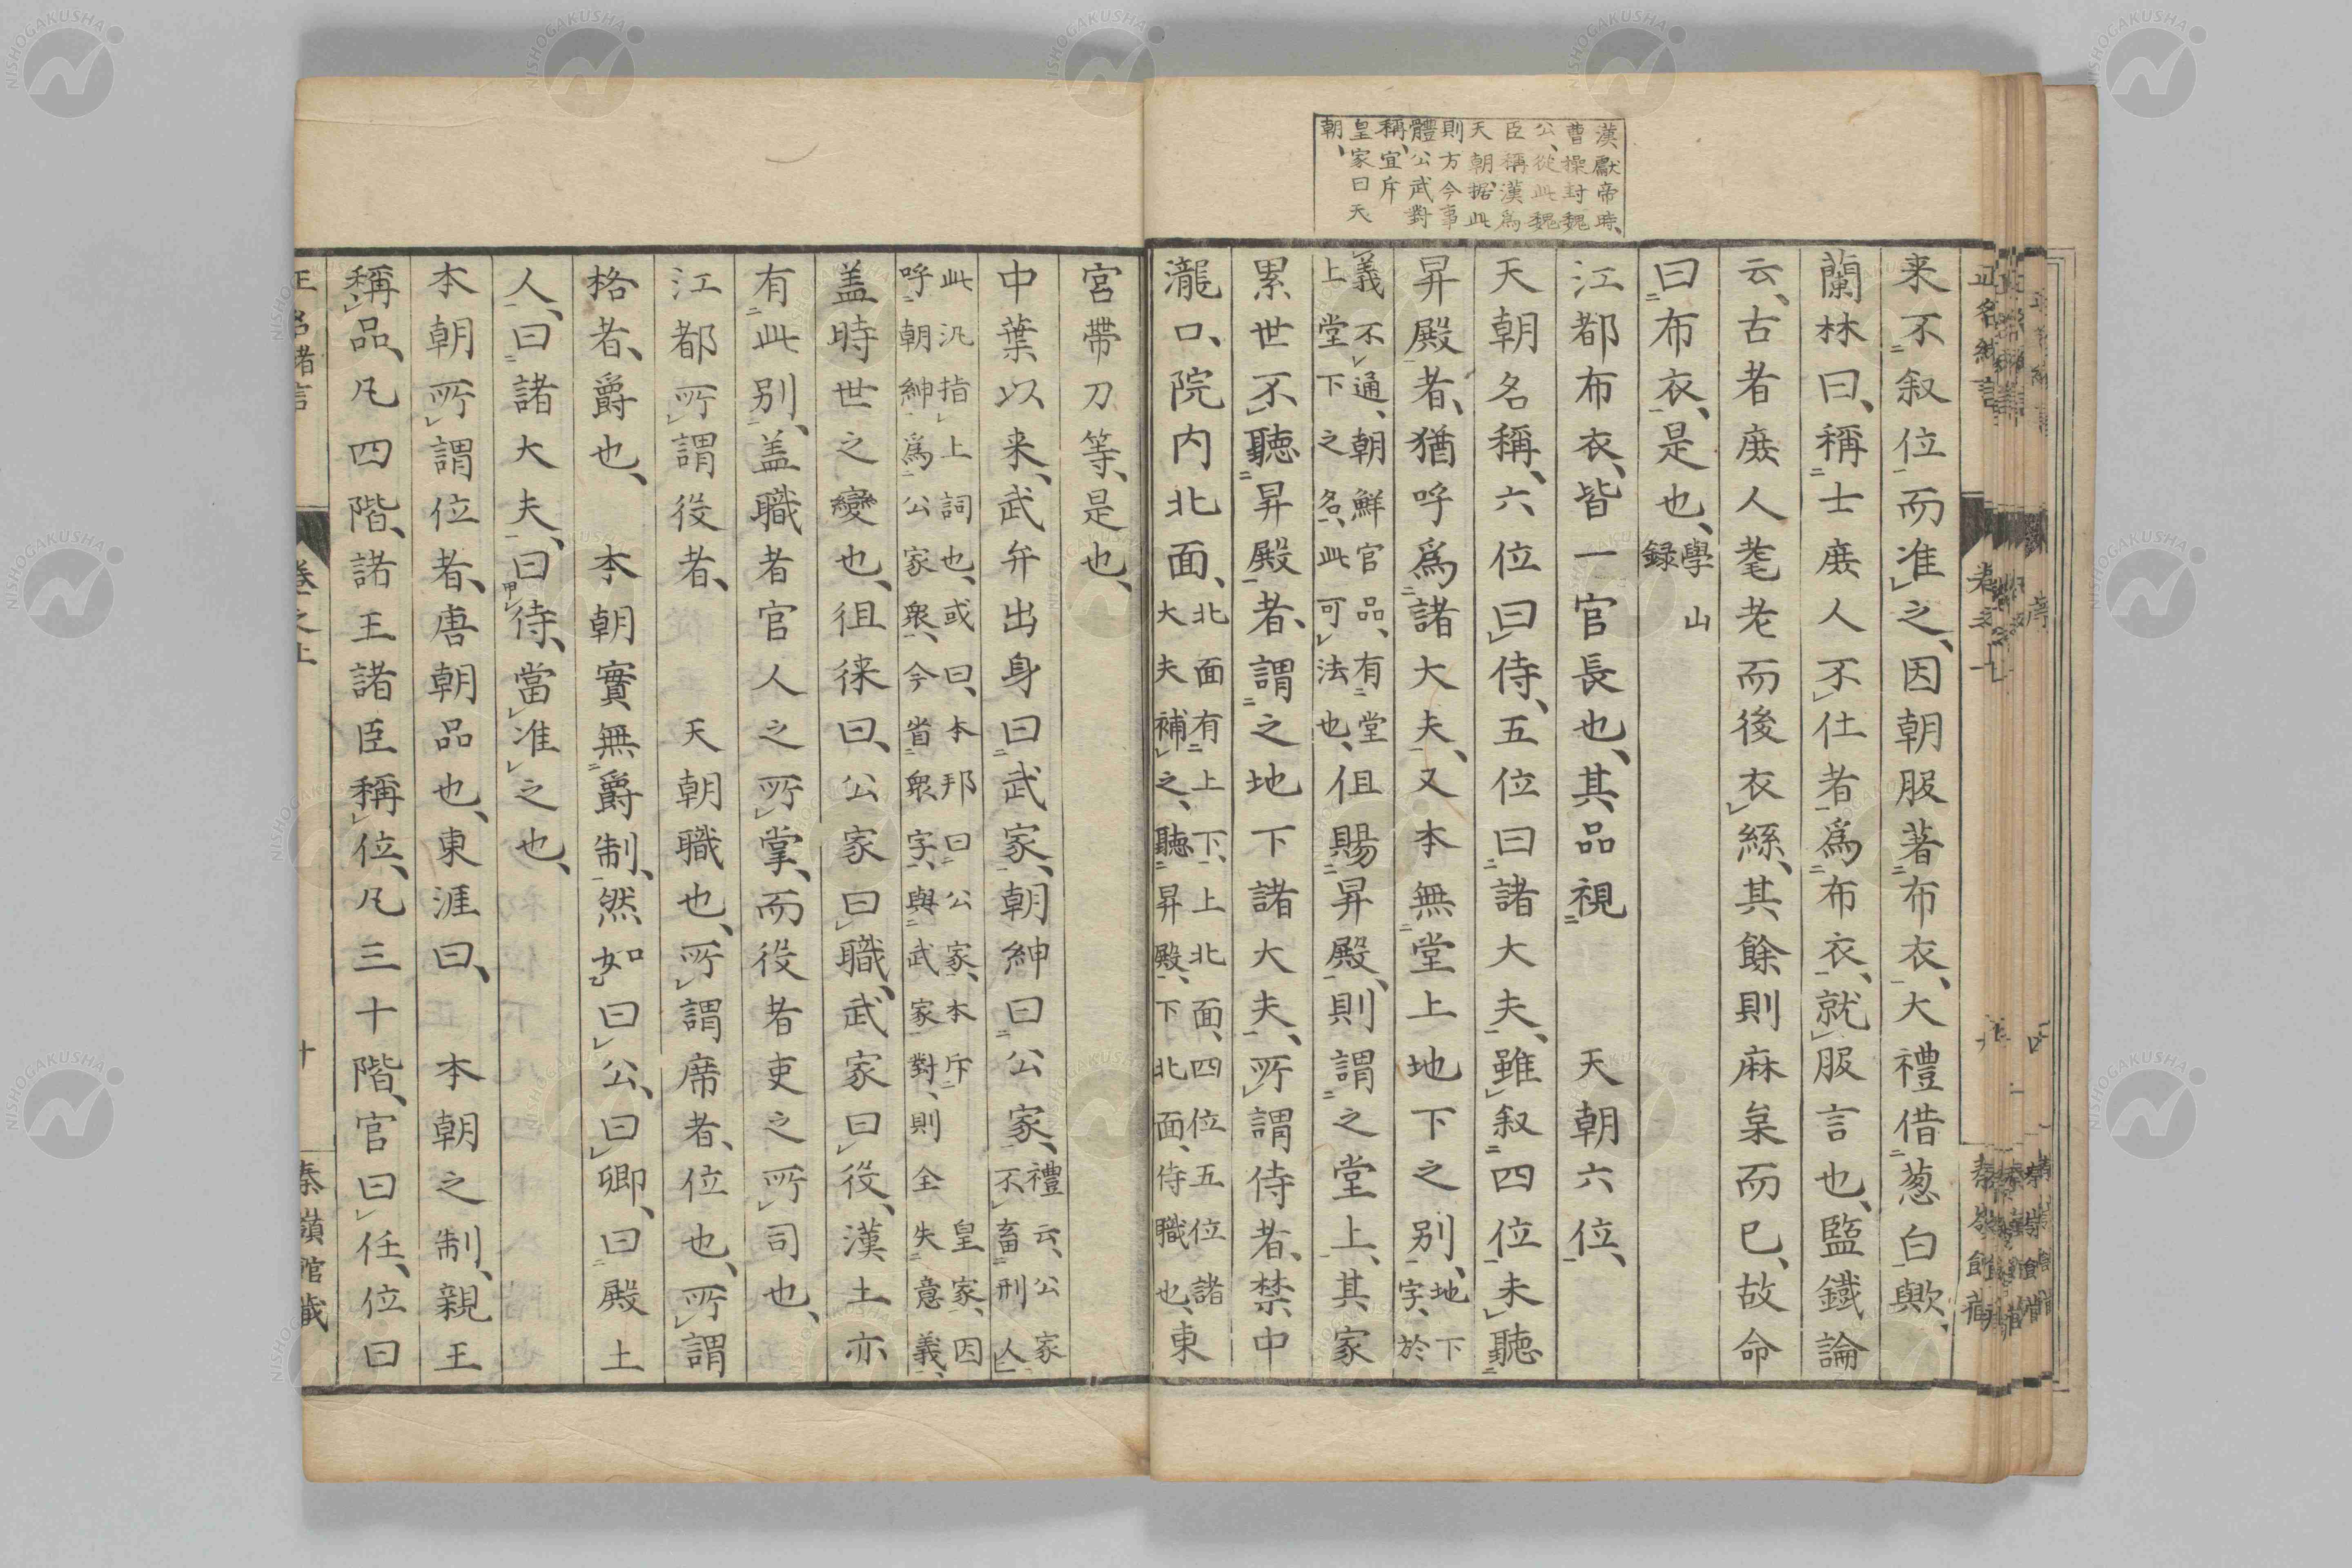 漢獻帝時、
曹操封魏
公、從此魏
臣稱漢爲
天朝、据此
則方今事
體公武對
稱、宜斥
皇家曰天
朝、
来不叙位而准之、因朝服著布衣、大禮借葱白歟、
蘭林曰、稱士庻人不仕者爲布衣、就服言也、監鐵論
云、古者庻人耄老而後衣絲、其餘則麻枲而已、故命
曰布衣、是也、學山録
江都布衣、皆一官長也、其品視 天朝六位、
天朝名稱、六位曰侍、五位曰諸大夫、雖叙四位未聽
昇殿者、猶呼爲諸大夫、又本無堂上地下之别、地下字、於
義不通、朝鮮官品、有堂上堂下之名、此可法也、但賜昇殿、則謂之堂上、其家
累世不聽昇殿者、謂之地下諸大夫、所謂侍者、禁中
瀧口、院内北面、北面有上下、上北面、四位五位諸大夫補之、聽昇殿、下北面、侍職也、東
宮帶刀等、是也、
中葉以来、武弁出身曰武家、朝紳曰公家、禮云、公家不畜刑人、
此汎指上詞也、或曰、本邦曰公家、本斥 皇家、因呼朝紳爲公家衆、今省衆字、與武家對、則全失意義、
盖時世之變也、徂徠曰、公家曰職、武家曰役、漢土亦
有此别、盖職者官人之所掌、而役者吏之所司也、
江都所謂役者、 天朝職也、所謂席者、位也、所謂
格者、爵也、 本朝實無爵制、然如曰公、曰卿、曰殿上
人、曰諸大夫、曰侍、當准之也、
本朝所謂位者、唐朝品也、東涯曰、 本朝之制、親王
稱品、凡四階、諸王諸臣稱位、凡三十階、官曰任、位曰
正名緒言 卷之上 十 秦嶺館藏
NISHOGAKUSHA